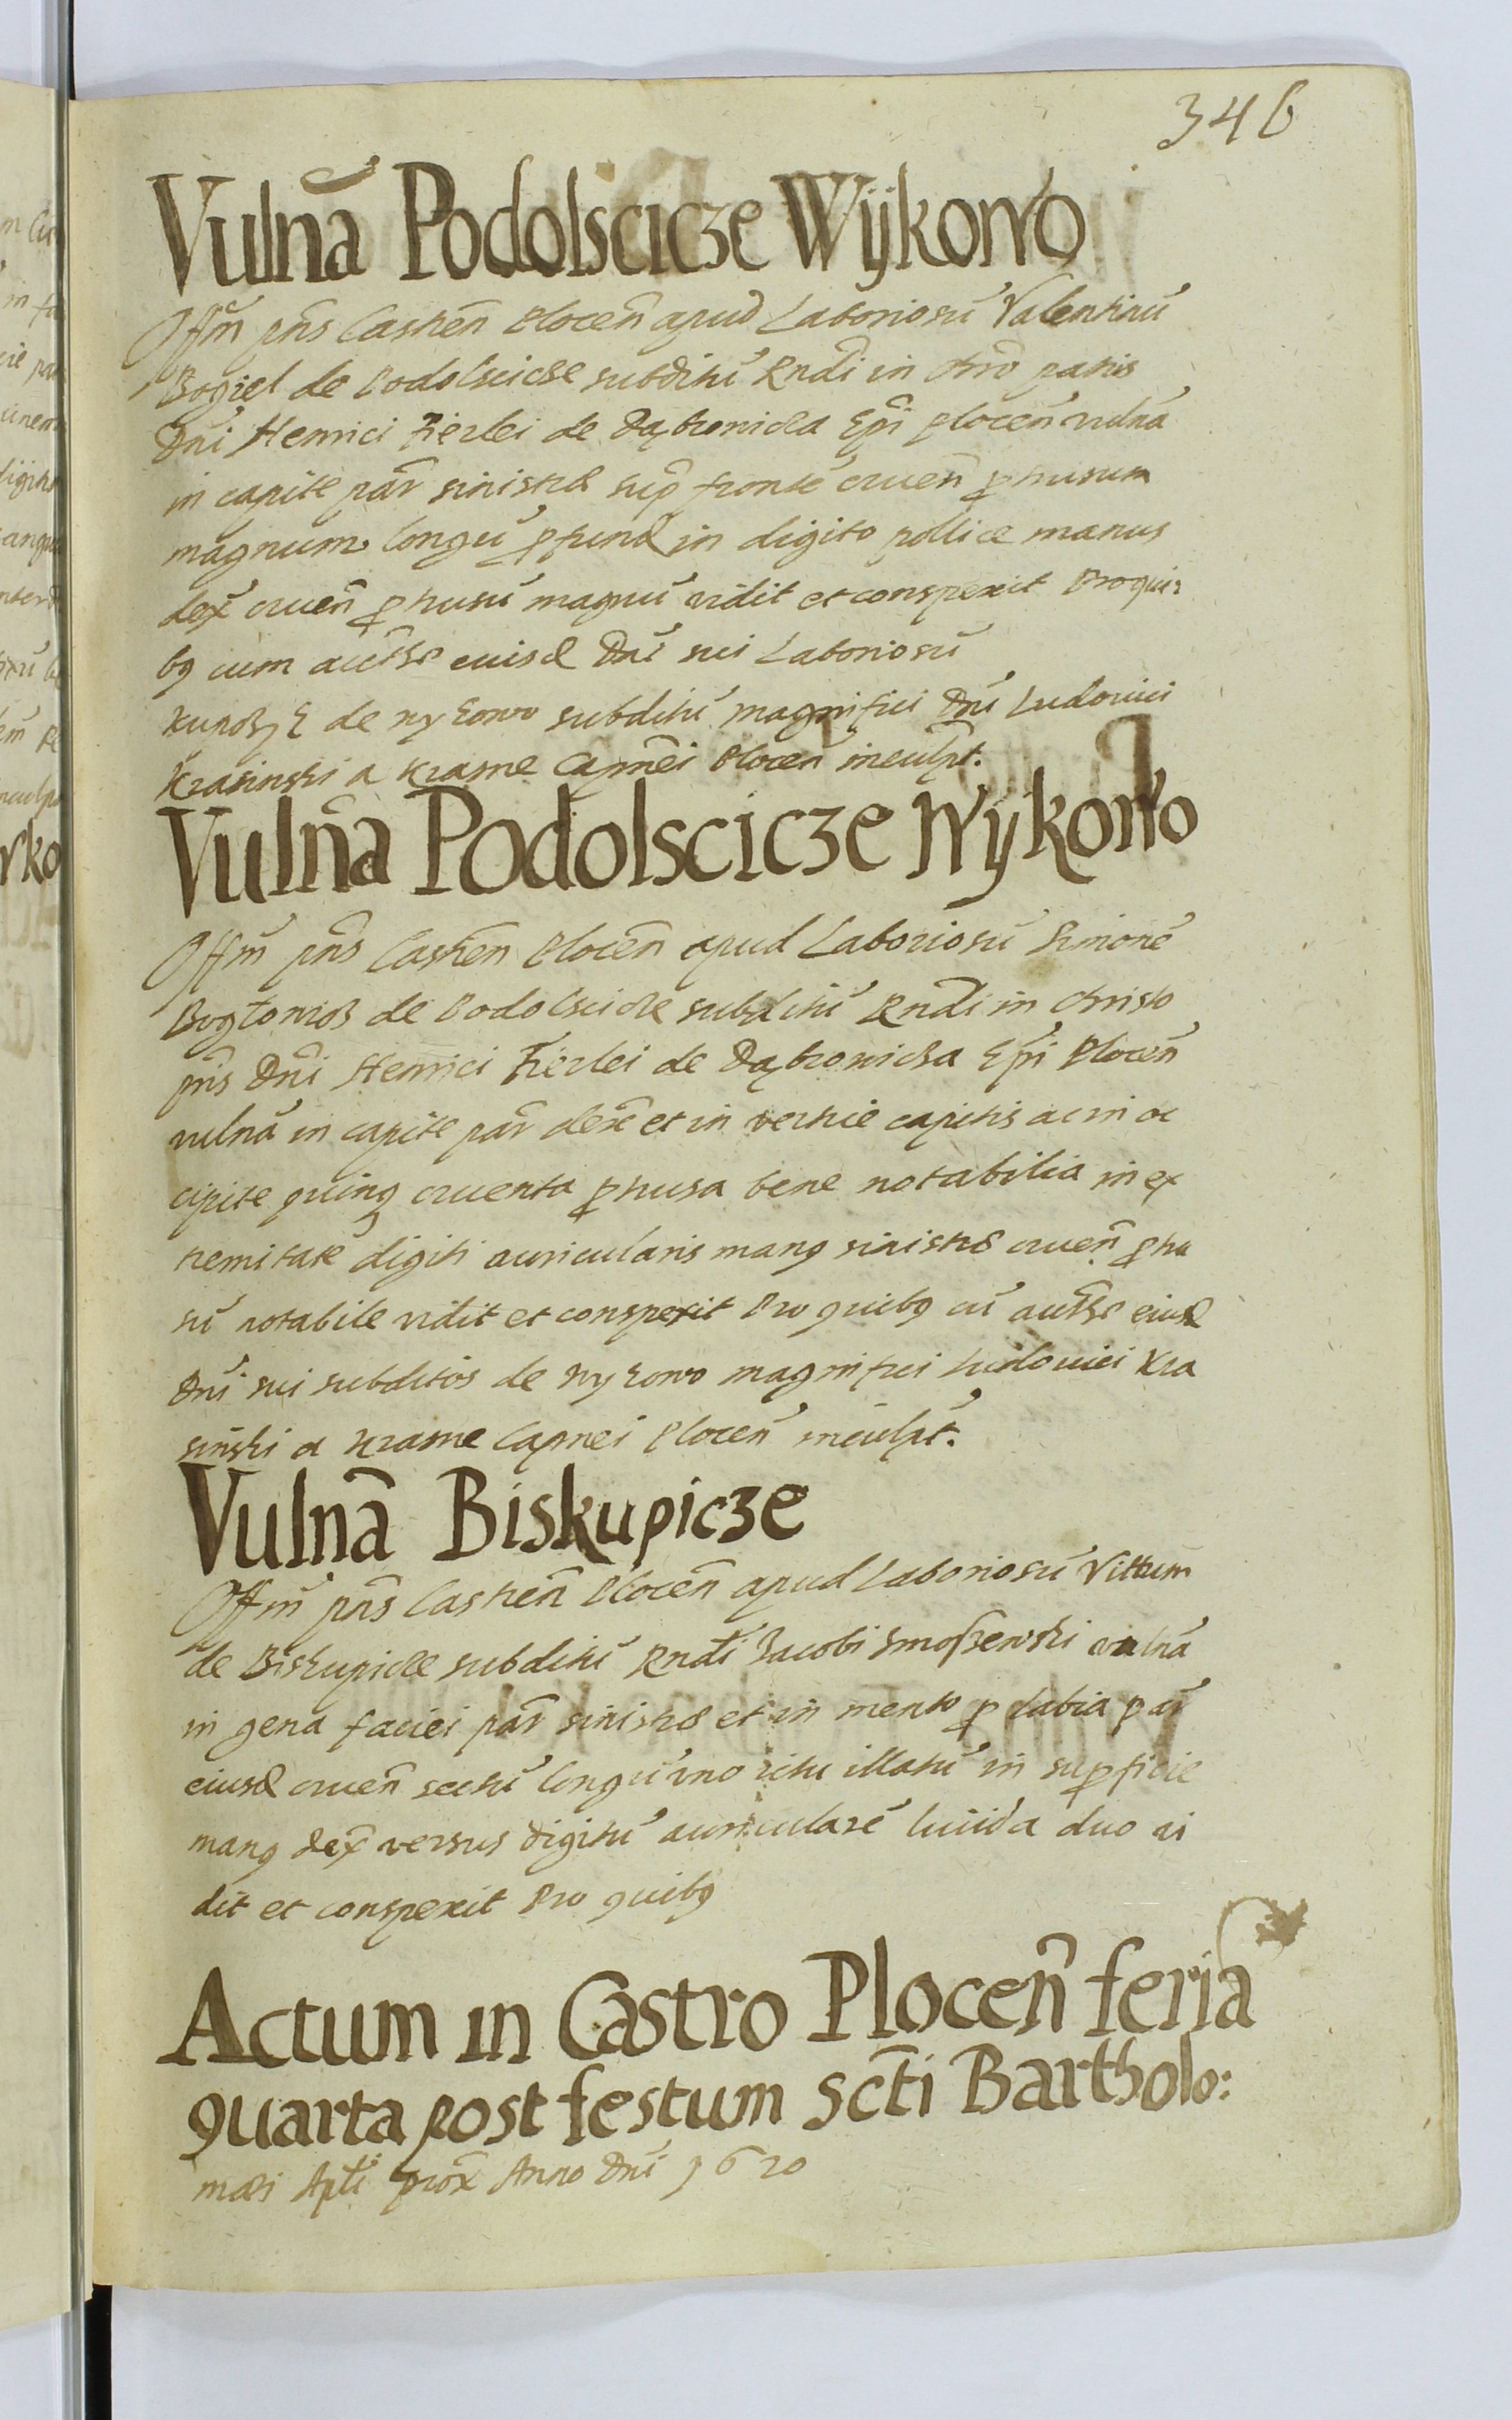 346
Vulnã Podolscicze Wijkowo
Offm̃ pñs Castreñ Ploceñ apud Laboriosũ Valentinũ
Bogiel de Podolscicze subditũ Rndi in Chro patris
Dñi Henrici Fierlei de Dąbrowicza Epĩ Ploceñ vulnã
in capite par̃ sinistra sup fronte cruen̄ ptusum
magnum longũ pfund in digito pollice manus
dex̃ cruen̄ ptusũ magnũ vidit et conspexit Pro qui:
bq cum authe eiusd Dñi sui Laboriosũ
de Wykowo subditũ magnifici Dñi Ludovici
Krasinski a Krasne Capnei Ploceñ inculpt.
Vulnã Podolscicze Wijkowo
Offm̃ pñs Castreñ Ploceñ apud Laboriosũ Simonẽ
de Podolscicze subditũ Rndi in Christo
pris Dñi Henrici Fierlei de Dąbrowicza Epĩ Ploceñ
vulnã in capite par̃ dex̃ et in vertice capitis ac in oc
cipite quinq cruenta ptusa bene notabilia in ex
tremitate digiti auricularis manq sinistra cruen̄ ptu
sũ notabile vidit et conspexit Pro quibq cũ authe eiusd
Dñi sui subditos de Wykowo magnifici Ludovici Kra
sinski a Krasne Capnei Ploceñ inculpt.
Vulnã Biskupicze
Offm̃ pñs Castreñ Ploceñ apud Laboriosũ Vittum
de Biskupicze subditũ Rndi Jacobi Smoszewski vulnã
in gena faciei par̃ sinistra et in mento p labia par̃
eiusd cruen̄ sectũ longũ uno ictu illatũ in supficie
manq dex̃ versus digitũ auricularẽ livida duo vi
dit et conspexit Pro quibq
Actum in Castro Ploceñ feria
quarta post festum Scti Bartholo:
mæi Apli prox̃ Anno Dñi 1620